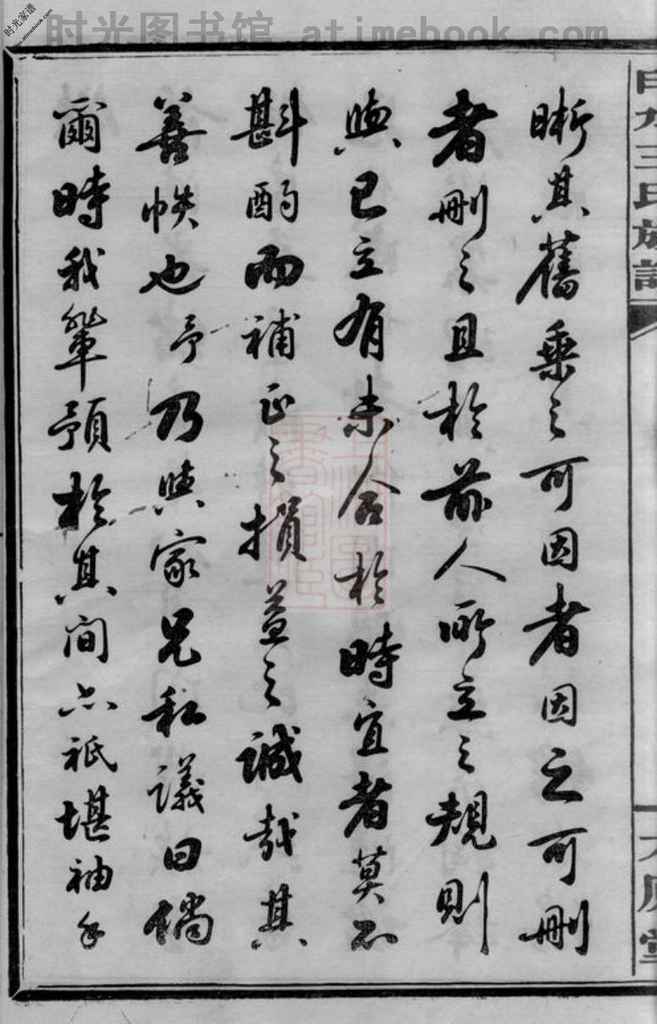 时光图书馆 @ atimebook.com
时光家谱
www.atimebook.com
三氏族譜
晰其舊乗之可因者因之可刪
者刪之且於前人所立之規則
與已立有未合於時宜者莫不
斟酌而補正之損益之誠哉其
善帙也予乃與家兄私議曰倘
爾時我輩預於其間亦祇堪袖手